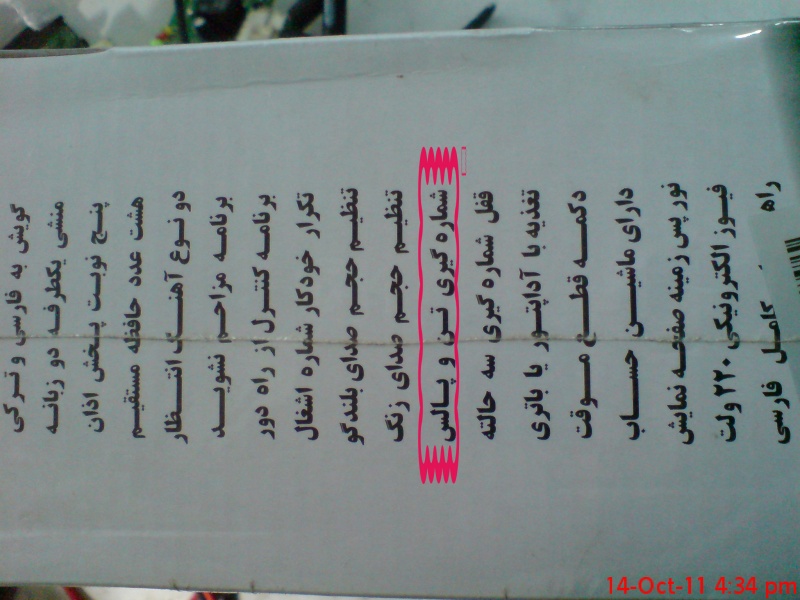 گویش به فارسی و ترکی
منشی یکطرفه دو زبانه
پنج نوبت پخش اذان
هشت عدد حافظه مستقیم
دو نوع آهنگ انتظار
برنامه مزاحم نشوید
برنامه کنترل از راه دور
تکرار خودکار شماره اشغال
تنظیم حجم صدای بلندگو
تنظیم حجم صدای زنگ
شماره گیری تن و پالس
قفل شماره گیری سه حالته
تغذیه با آداپتور یا باتری
دکمه قطع موقت
دارای ماشین حساب
نور پس زمینه صفحه نمایش
فیوز الکترونیکی ۲۲۰ ولت
کامل فارسی
14-Oct-11 4:34 pm